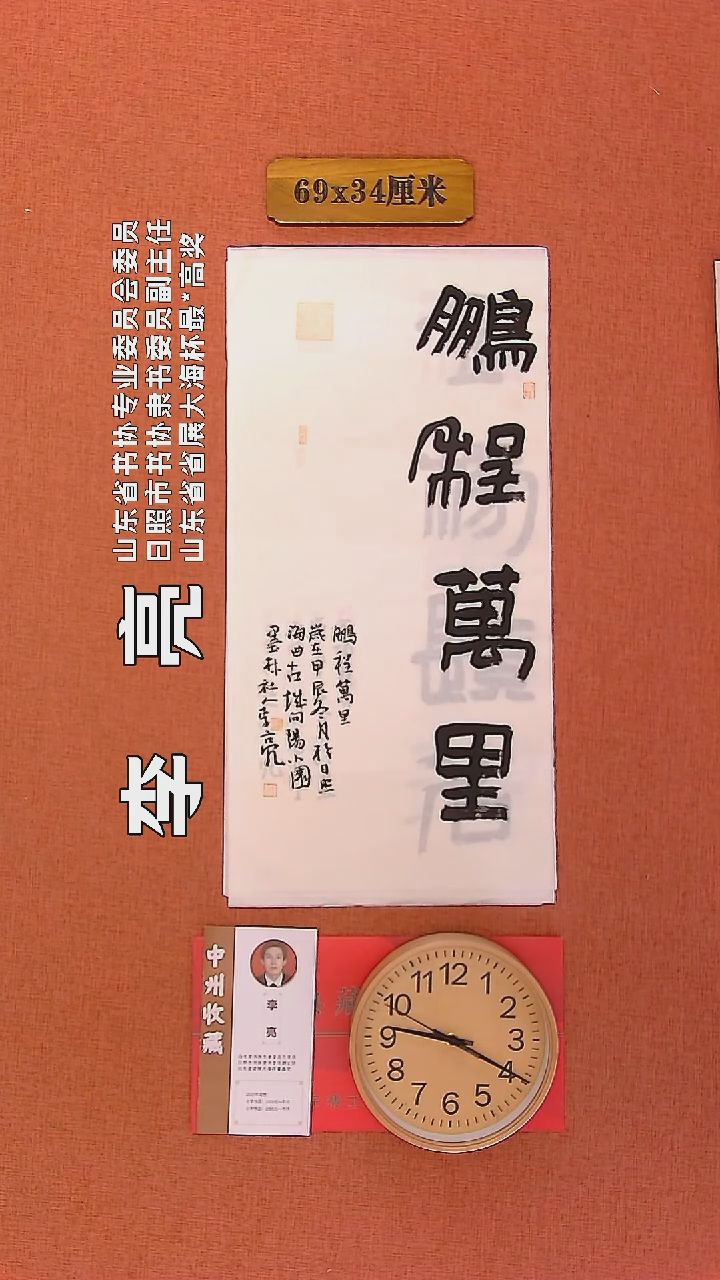 69x34厘米
鹏程萬里
鹏程萬里
歲在甲辰冬月於日照
海曲古城向陽小園
墨朴社人李亮
李亮
山东省书协专业委员会委员
日照市书协隶书委员副主任
山东省省展大海杯最*高奖
中州收藏
李亮
藏
12
1
2
3
4
5
6
7
8
9
10
11